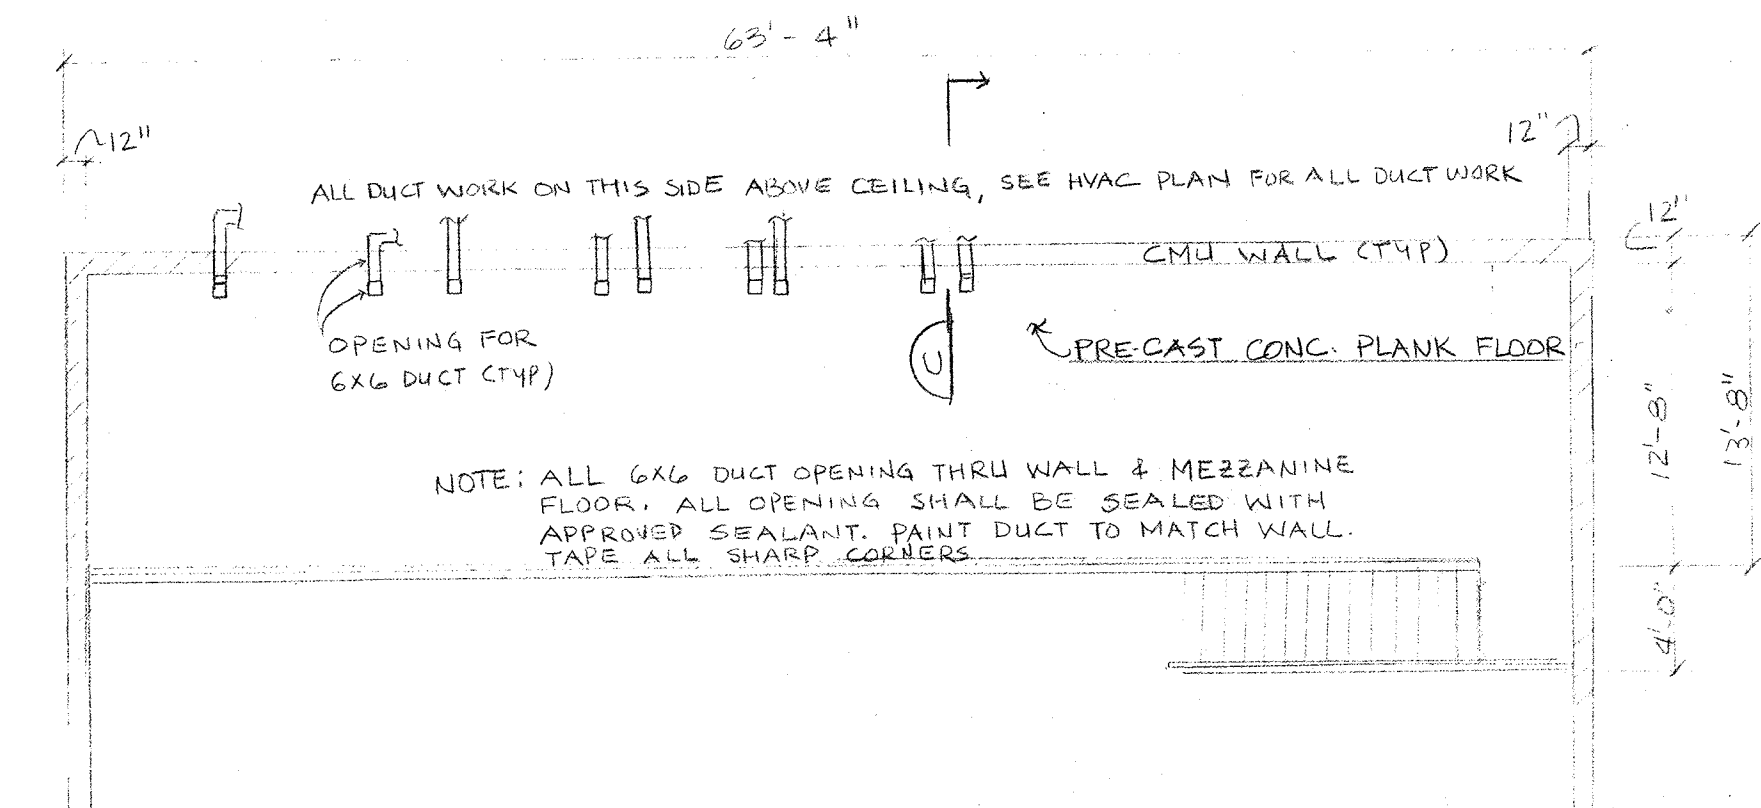 63'-4"
12"
12"
ALL DUCT WORK ON THIS SIDE ABOVE CEILING, SEE HVAC PLAN FOR ALL DUCT WORK
12"
CMU WALL (TYP)
OPENING FOR
6X6 DUCT (TYP)
U
PRE-CAST CONC. PLANK FLOOR
12'-8"
13'-8"
NOTE: ALL 6X6 DUCT OPENING THRU WALL & MEZZANINE
FLOOR. ALL OPENING SHALL BE SEALED WITH
APPROVED SEALANT. PAINT DUCT TO MATCH WALL.
TAPE ALL SHARP CORNERS
4'-0"